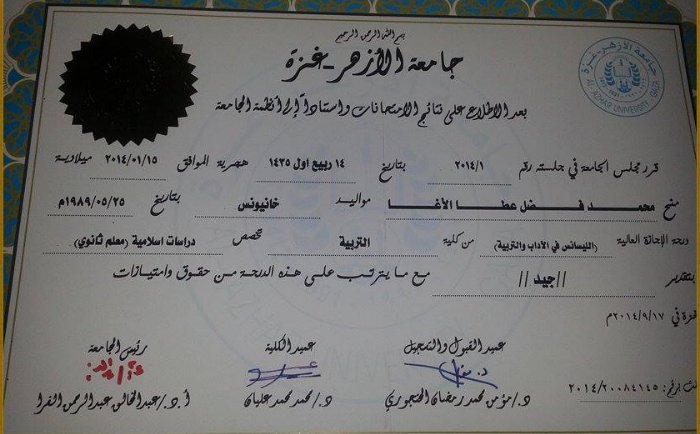 بسم الله الرحمن الرحيم
جامعة الأزهر-غزة
جامعة الأزهر-غزة
AL AZHAR UNIVERSITY-GAZA
بعد الاطلاع على نتائج الامتحانات واستناداً إلى أنظمة الجامعة
قرر مجلس الجامعة في جلسته رقم ٢٠١٤/١ بتاريخ ١٤ ربيع اول ١٤٣٥ هجرية الموافق ٢٠١٤/٠١/١٥ ميلادية
منح محمد فضل عطا الأغا مواليد خانيونس بتاريخ ١٩٨٩/٠٥/٢٥م
درجة الإجازة العالية (الليسانس في الآداب والتربية) من كلية التربية تخصص دراسات اسلامية (معلم ثانوي)
بتقدير //جيد// مع ما يترتب على هذه الدرجة من حقوق وامتيازات
غزة في ٢٠١٤/٩/١٧م
عميد القبول والتسجيل عميد الكلية رئيس الجامعة
د./مؤمن محمد رمضان الحنجوري د./محمد محمد عليان أ.د/عبدالخالق عبدالرحمن الفرا
٢٠١٤/٢٠٠٨٤١٤٥